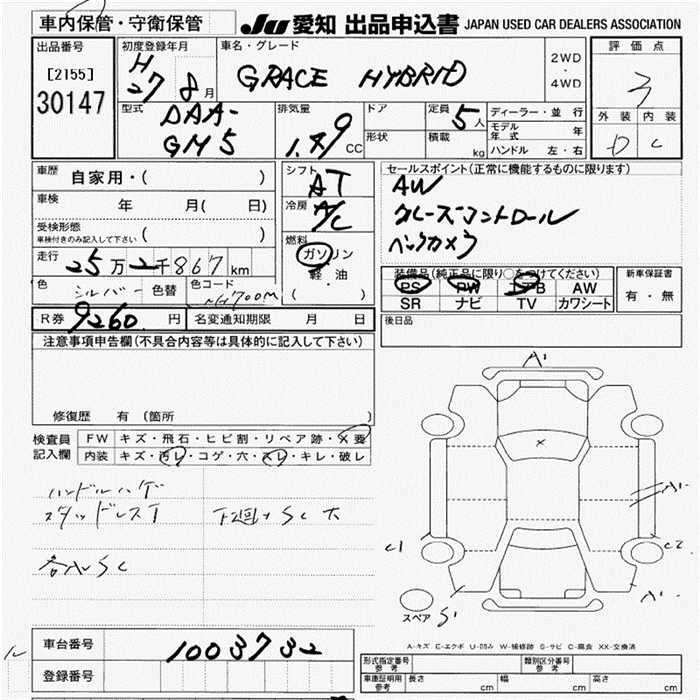 車内保管・守衛保管
JU 愛知 出品申込書 JAPAN USED CAR DEALERS ASSOCIATION
出品番号
[2155]
30147
初度登録年月
H
27 8 月
車名・グレード
GRACE HYBRID
2WD
・
4WD
評価点
3
外装 内装
D C
型式
DAA-
GM5
排気量
1.49 CC
ドア
形状
定員 5 人
積載 kg
ディーラー・並行
モデル年式 年
ハンドル 左・右
車歴 自家用・( )
車検 年 月( 日)
受検形態
車検付きのみ記入して下さい ( )
走行 25万2千867km
色 シルバー 色替 色コード NH700M
シフト
AT
冷房
A/C
燃料
ガソリン
軽・油
( )
セールスポイント(正常に機能するものに限ります)
AW
クルーズコントロール
バックカメラ
装備品(純正品に限り○をつけてください)
PS PW エアB AW
SR ナビ TV カワシート
新車保証書
有・無
R券 9260 円 名変通知期限 月 日
後日品
注意事項申告欄(不具合内容等は具体的に記入して下さい)
修復歴 有 (箇所 )
検査員
記入欄
FW キズ・飛石・ヒビ割・リペア跡・X要
内装 キズ・汚レ・コゲ・穴・スレ・キレ・破レ
ハンドルハゲ
スタッドレスT 下廻りSC大
各AL SC
A1
X
A1
C1
C2
A1
スペア S1
A-キズ E-エクボ U-凹み W-補修跡 S-サビ C-腐食 XX-交換済
車台番号 1003732
登録番号
形式指定番号
参考
類別区分番号
参考
車庫証明用
参考
長さ cm 幅 cm 高さ cm